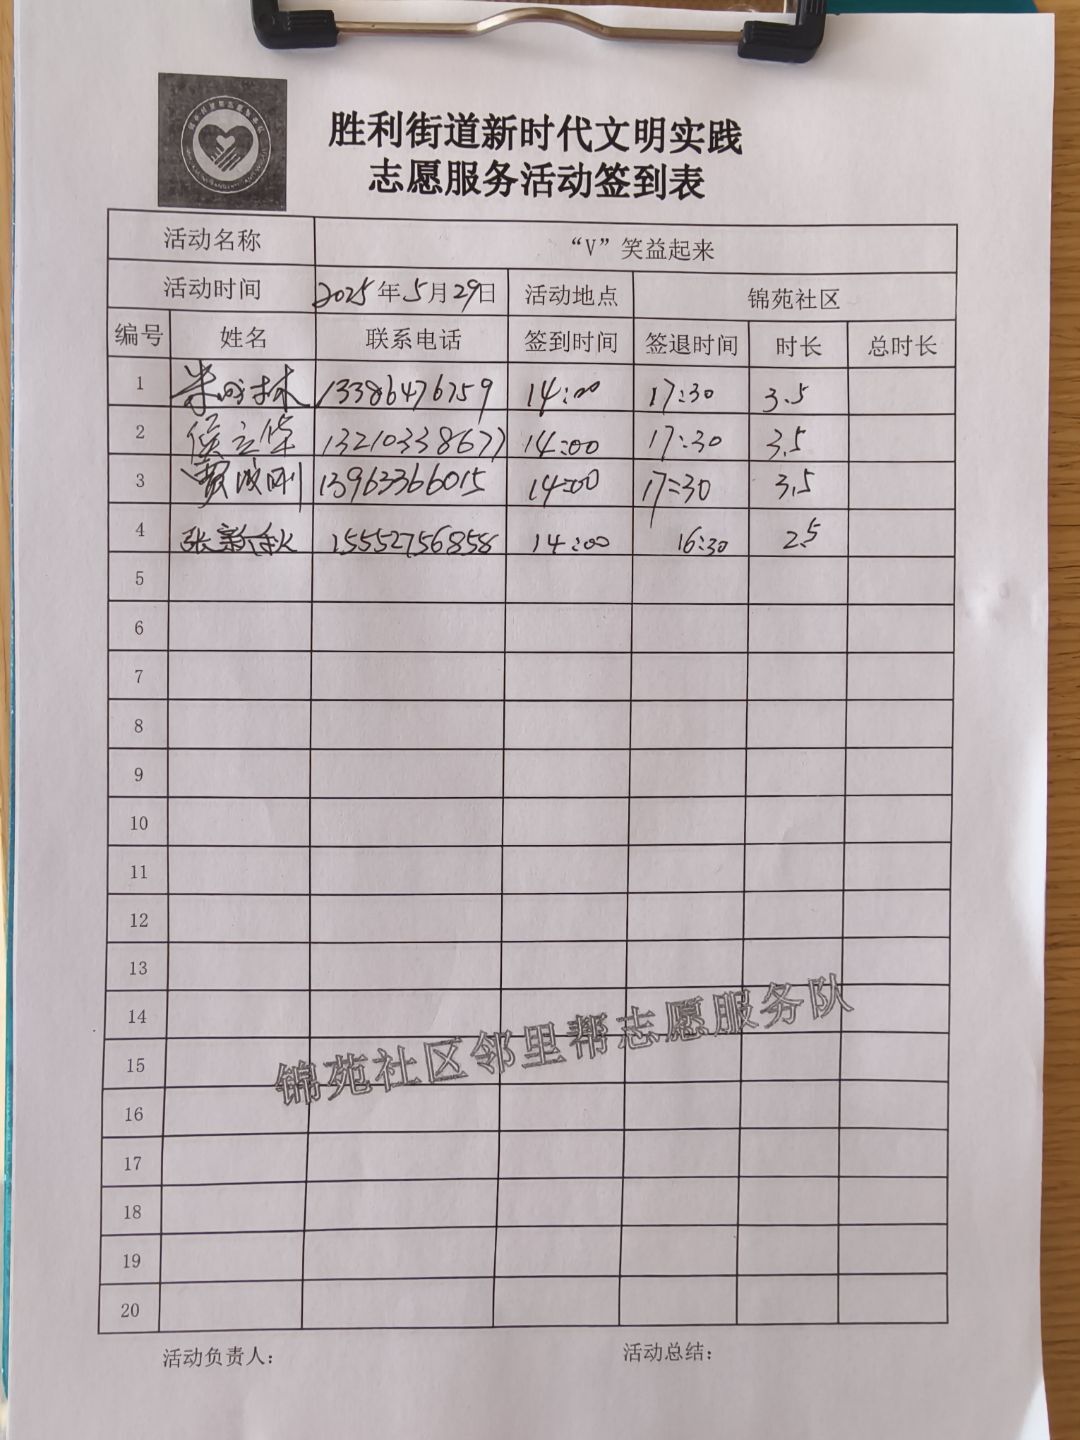 胜利街道新时代文明实践
志愿服务活动签到表
活动名称 “V”笑益起来
活动时间 2025年5月29日 活动地点 锦苑社区
编号 姓名 联系电话 签到时间 签退时间 时长 总时长
1 13386476759 14:00 17:30 3.5
2 侯立华 13210338677 14:00 17:30 3.5
3 贾成刚 13963366015 14:00 17:30 3.5
4 张新秋 15552756858 14:00 16:30 2.5
5
6
7
8
9
10
11
12
13
14
15
16
17
18
19
20
锦苑社区邻里帮志愿服务队
活动负责人: 活动总结: